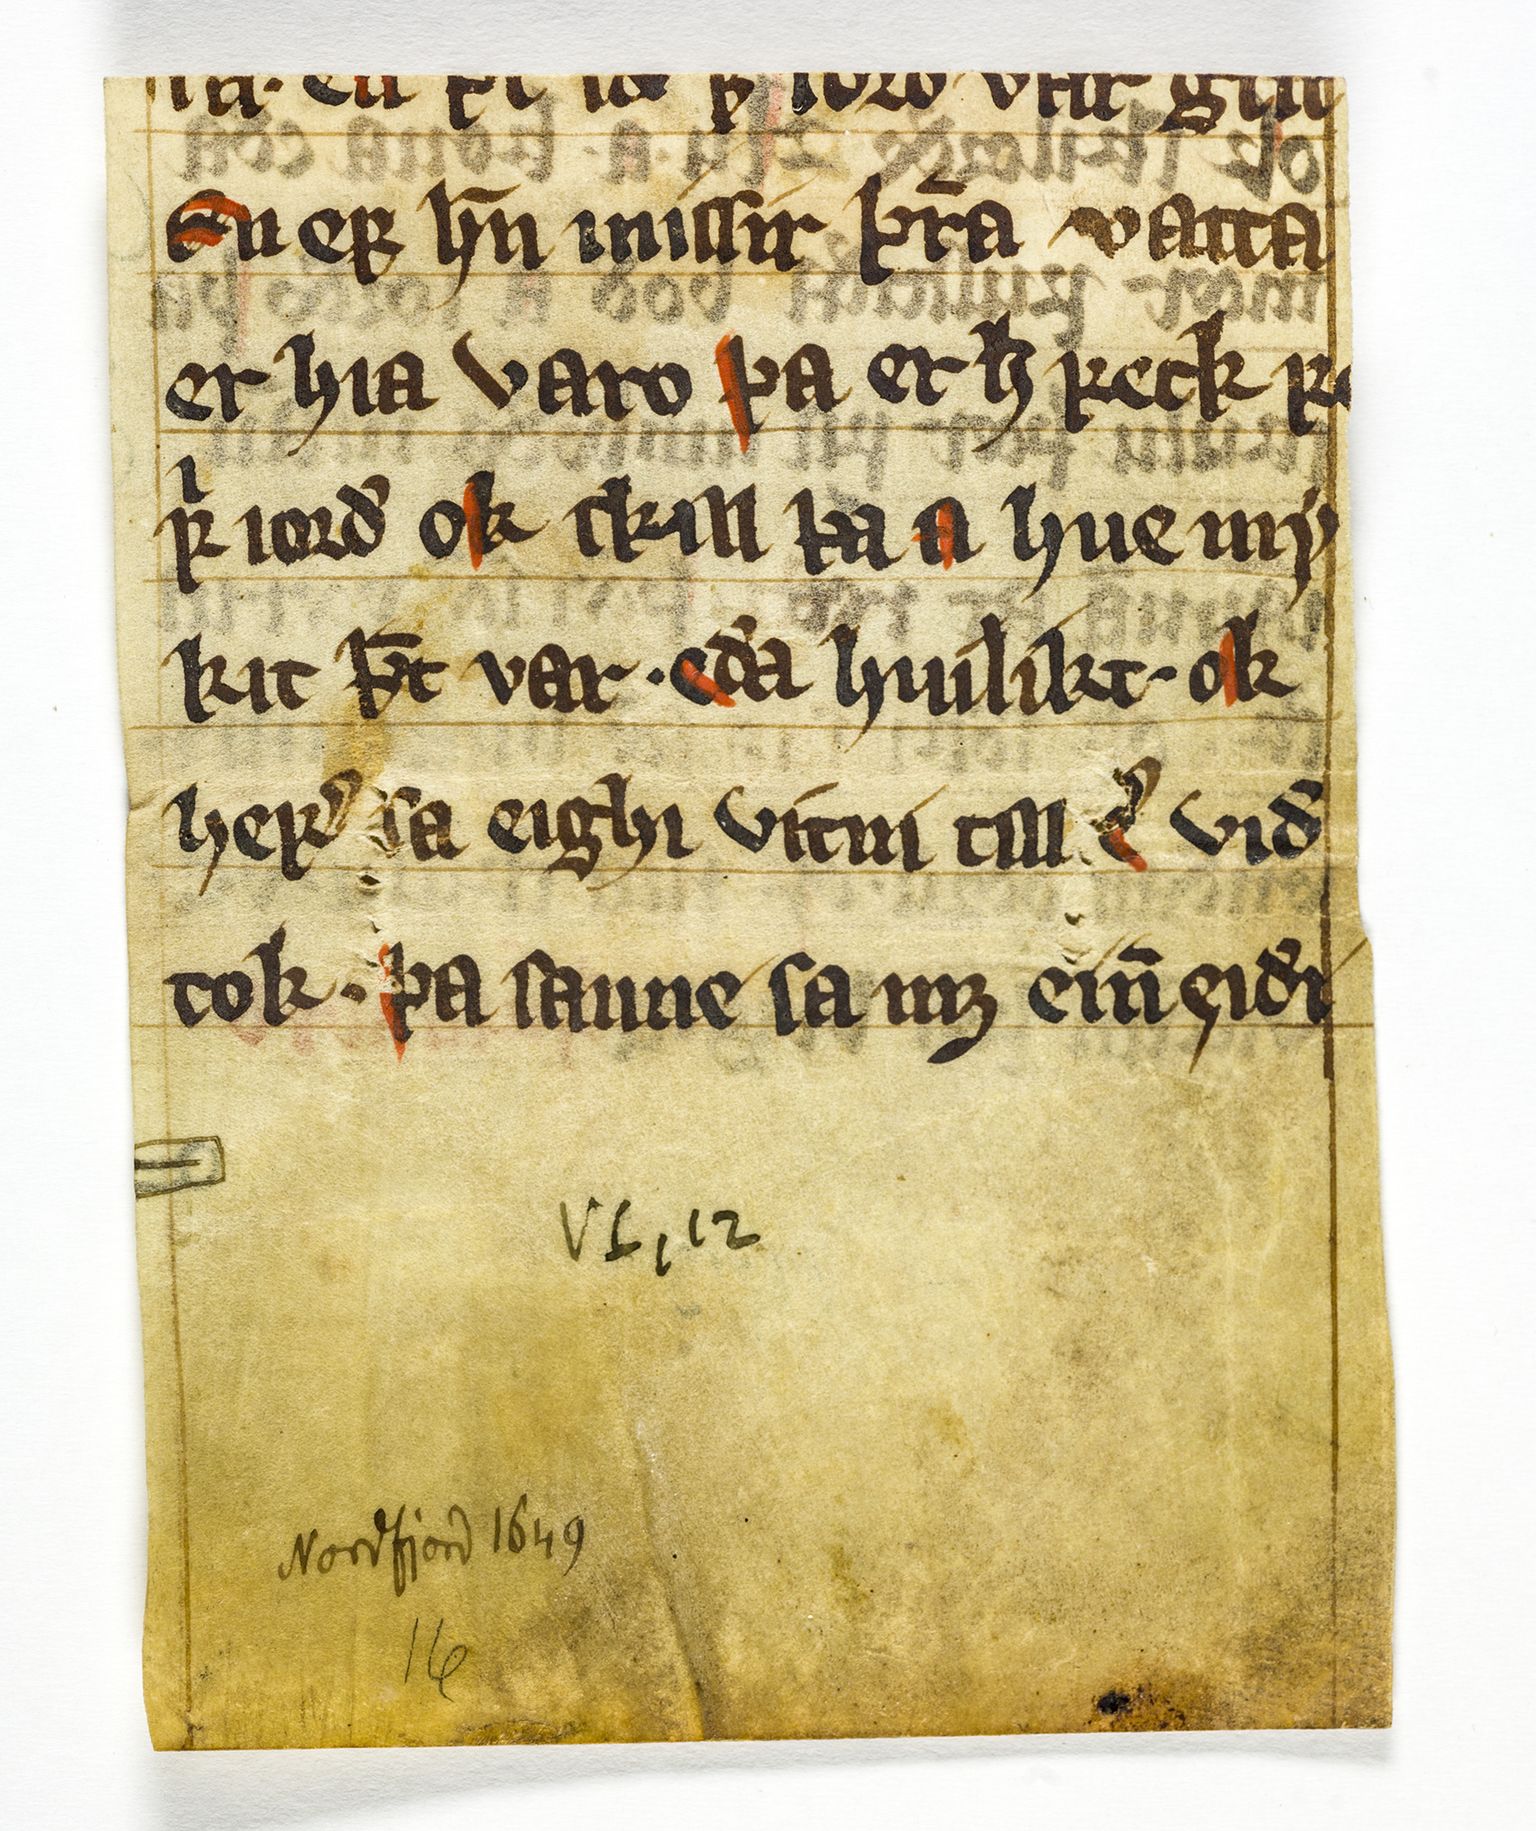 En eꝼ hn̄ missir þr̄a vatta
er hia varo þa er hꝫ ꝼeck ꝼe
ꝼ iord ok skill þa a hue my
kit þ̄t var · eda huilikt · ok
heꝼ sa eighi vitni till e vid
tok · þa sanne sa mꝫ einn̄ eidi
VI, 12
Nordfjord 1649
16